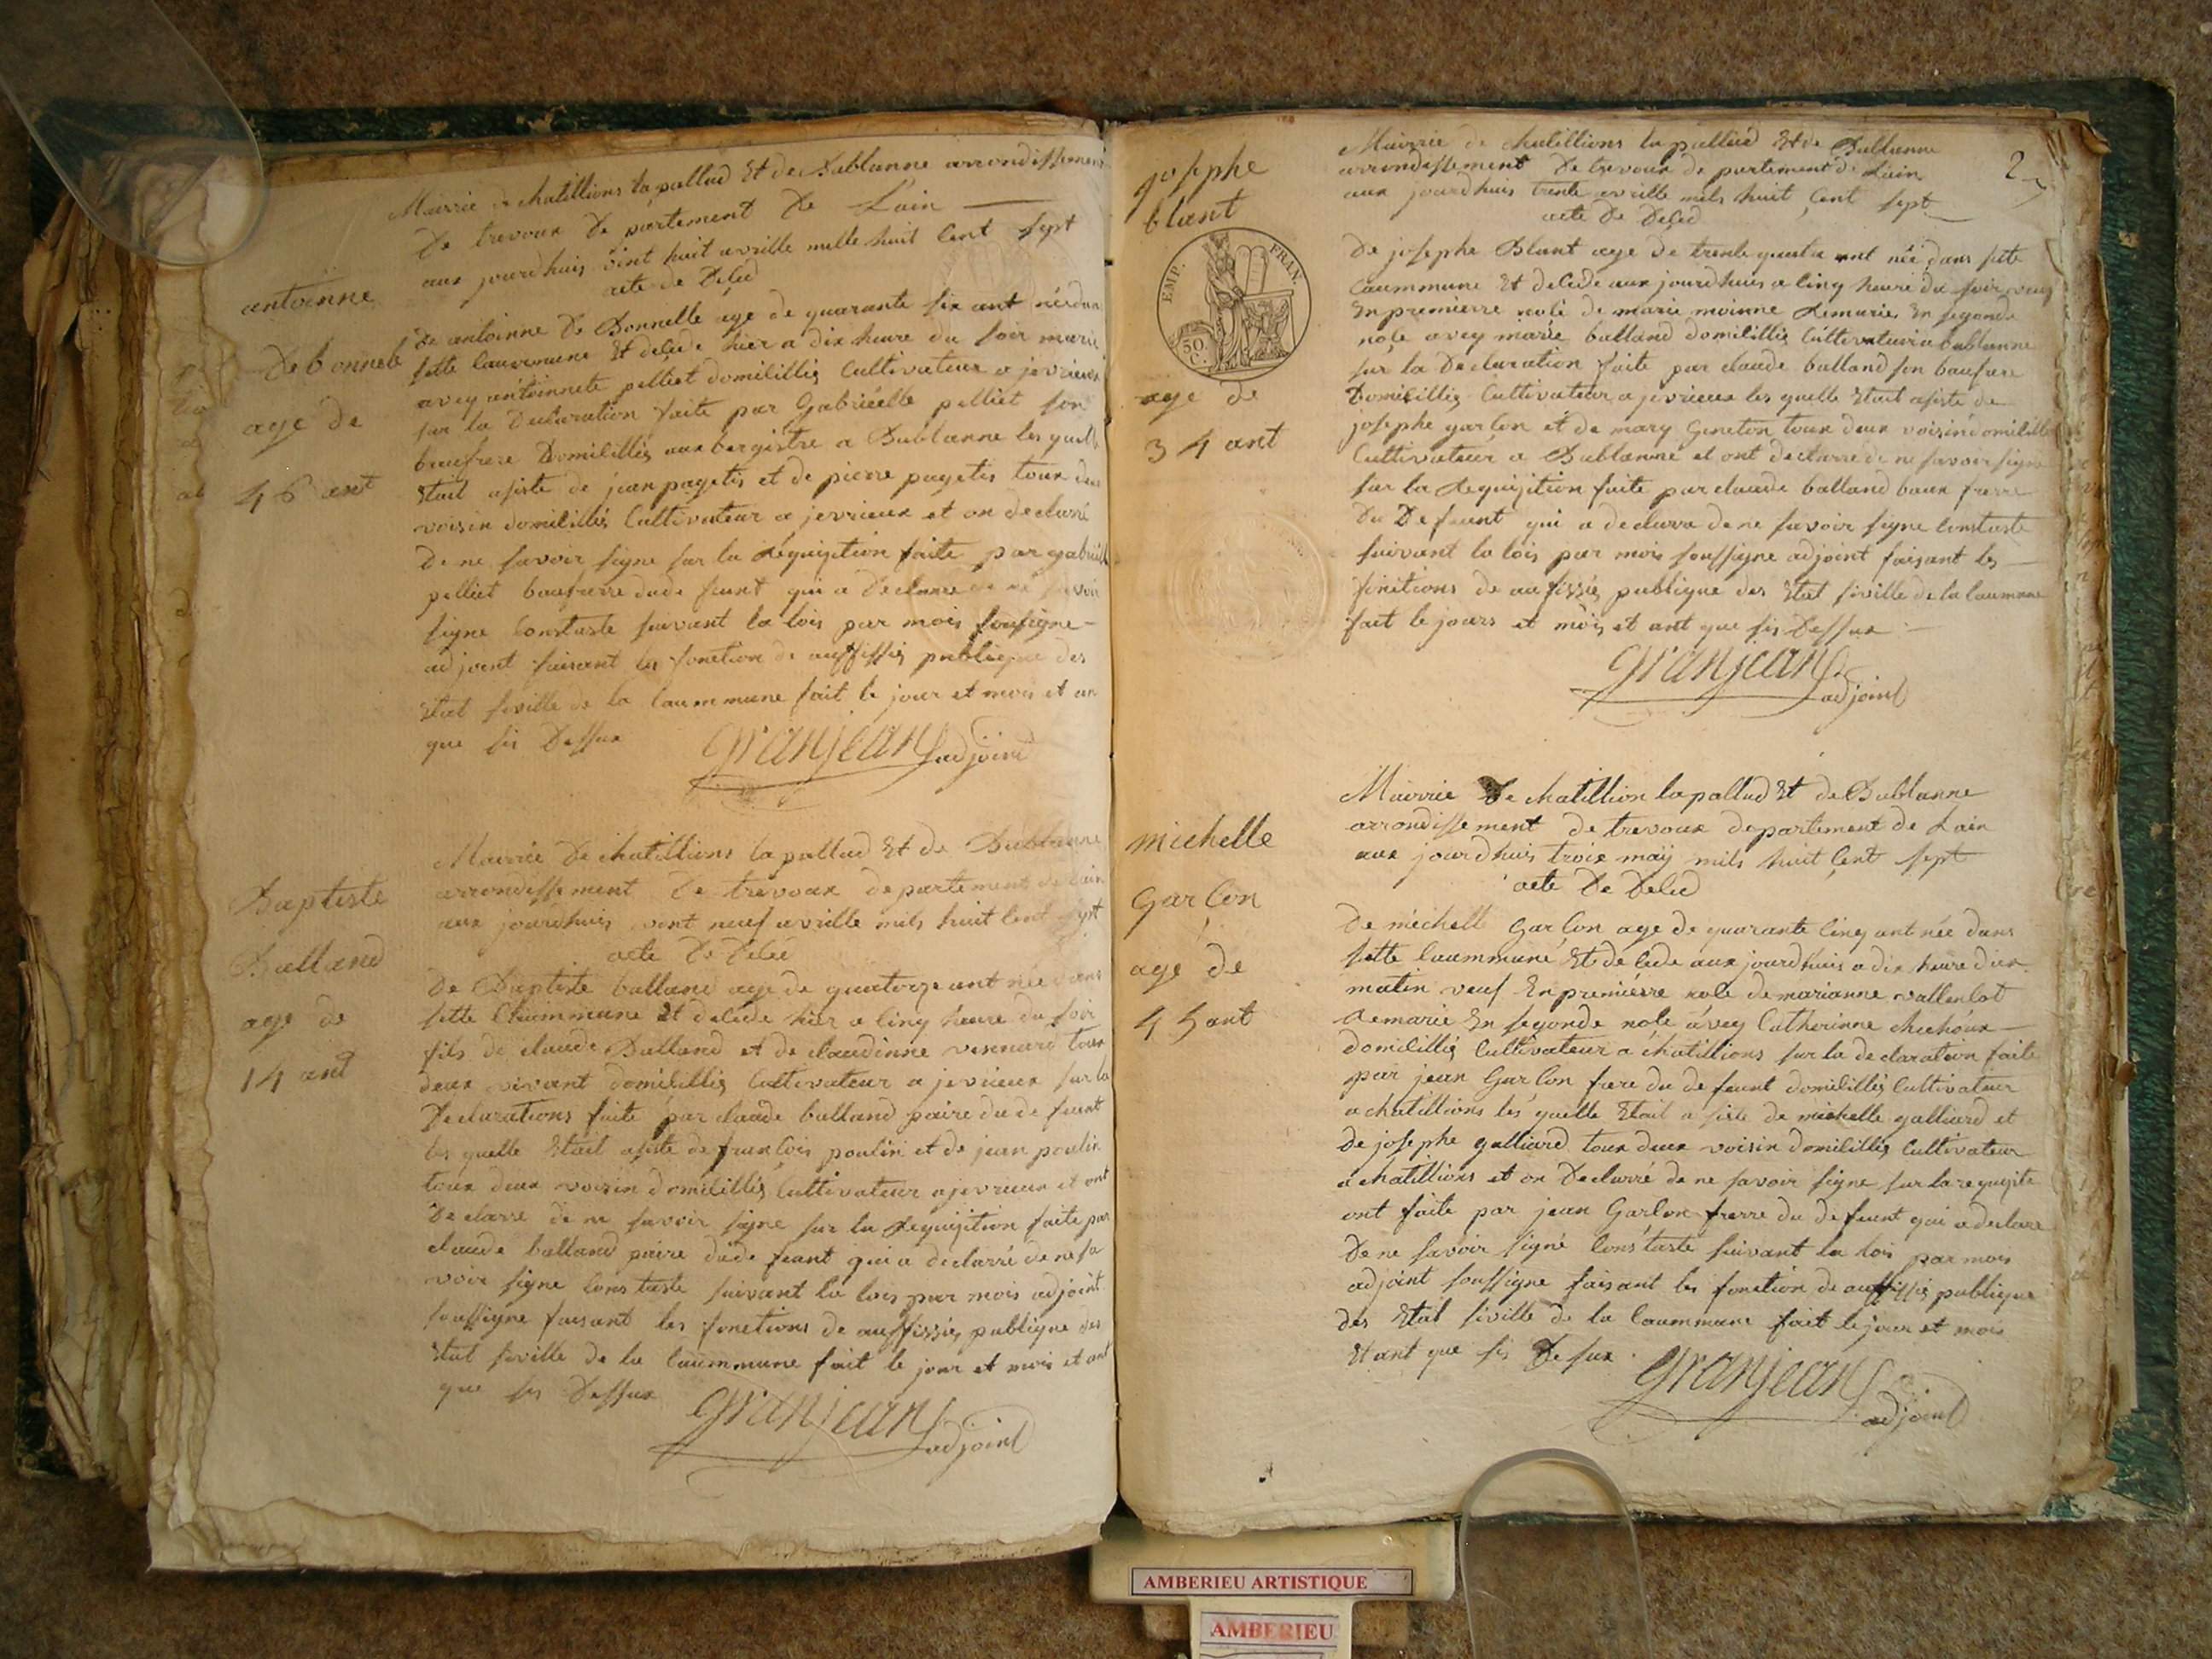 Mairrie de chatillions la pallud Et de Bublanne arrondissement
De trevoux De partement De Lain
aux jourdhuis vint huit avrille mille huit Cent sept
acte de Déséd
antoinne
De bonnele
age de
46 ant
De antoinne De Bonnelle age de quarante six ant née dans
sette Caummune Et deséde hier a dix heure du soir marié
avey antoinnete pelliet domisilliés Cultivateur a jevrieux
sur la Declaration faite par Gabrielle pelliet son
baufrere Domisilliés auxbergistre a Bublanne les quelle
Etait asisté de jean pagetis et de pierre pagetis toux deux
voisin domisilliés Cultivateur a jevrieux et on declarré
De ne savoir signe sur la Requisition faite par gabrielle
pelliet baufrerre dude funt qui a Declarré de ne savoir
signe Constaste suivant la lois par mois sousigne
adjoint faisant les fonction de auffissiés publique des
Etat siville de la Caummune fait le jour et mois et an
que sis Dessux
Granjean adjoind
Mairrie De chatillions la pallud Et de Bublanne
arrondissement De trevoux departement de Lain
aux jourdhuis vint neuf avrille mils huit Cent sept
acte De Déséd
Baptiste
Balland
age de
14 ant
De Baptiste balland age de quatorze ant née dans
sette Caummune Et deséde hier a Cinq heure du soir
fils de claude Balland et de claudinne vennard toux
deux vivant domisilliés Cultivateur a jevrieux sur la
Declarations faite par claude balland paire du de funt
les quelle Etait asisté de franCois poulin et de jean poulin
toux deux voisin domisilliés Cultivateur a jevrieux et ont
Declarre de ne savoir signe sur la Requisition faite par
claude balland paire dude feunt qui a declarré de ne sa
voir signe Constaste suivant la lois par mois adjoint
soussigne faisant les fonctions de auffissiés publique des
Etat siville de la Caummune fait le jour et mois et ant
que sis Dessux
Granjean adjoint
2
Mairrie de chatillions la pallud Et de Bublanne
arrondissement De trevoux de partement de Lain
aux jourdhuis trente avrille mils huit Cent sept
acte De Deséd
josephe
blant
EMP. FRAN.
50 C.
age de
34 ant
De josephe Blant age De trente quatre ant née dans sette
Caummune Et deséde aux jourdhuis a Cinq heure du soir veuf
En premierre nole de marie moinne Remariés En segonde
nole avey marie balland domisilliés Cultivateur a bublanne
sur la Declaration faite par claude balland son baufrere
Domisilliés Cultivateur a jevrieux les quelle Etait asisté de
josephe garCon et de mary Geneton toux deux voisin domisilliés
Cultivateur a Bublanne et ont declarre de ne savoir signe
sur la Requisition faite par claude balland baux frerre
Du Defeunt qui a declarra de ne savoir signe Constaste
suivant la lois par mois soussigne adjoint faisant les
fonctions de auffissiés publique des Etat siville de la Caummune
fait le jours et mois et ant que sis Dessux
Granjean
adjoint
Mairrie De chatillion la pallud Et de Bublanne
arrondissement de trevoux departement de Lain
aux jourdhuis troix may mils huit Cent sept
acte De Deséd
michelle
GarCon
age de
45 ant
De michell GarCon age de quarante Cinq ant née dans
sette Caummune Et de sede aux jourdhuis a dix heure dux
matin veuf En premierre nole de marianne vallenlot
Remarie En segonde nole avey Catherinne Michoux
domisilliés Cultivateur a chatillions sur la declaration faite
par jean GarCon frere du de feunt domisilliés Cultivateur
a chatillions les quelle Etait a sisté de michelle galliard et
De josephe galliard toux deux voisin domisilliés Cultivateur
a chatillions et on Declarré de ne savoir signe sur la requisite
ont faite par jean GarCon frerre du defeunt qui a declare
De ne savoir signé Constasté suivant la lois par mois
adjoint soussigne faisant les fonction de auffissiés publique
des Etat siville de la Caummune fait le jour et mois
Et ant que sis Desux
Granjean
adjoint
AMBERIEU ARTISTIQUE
AMBERIEU